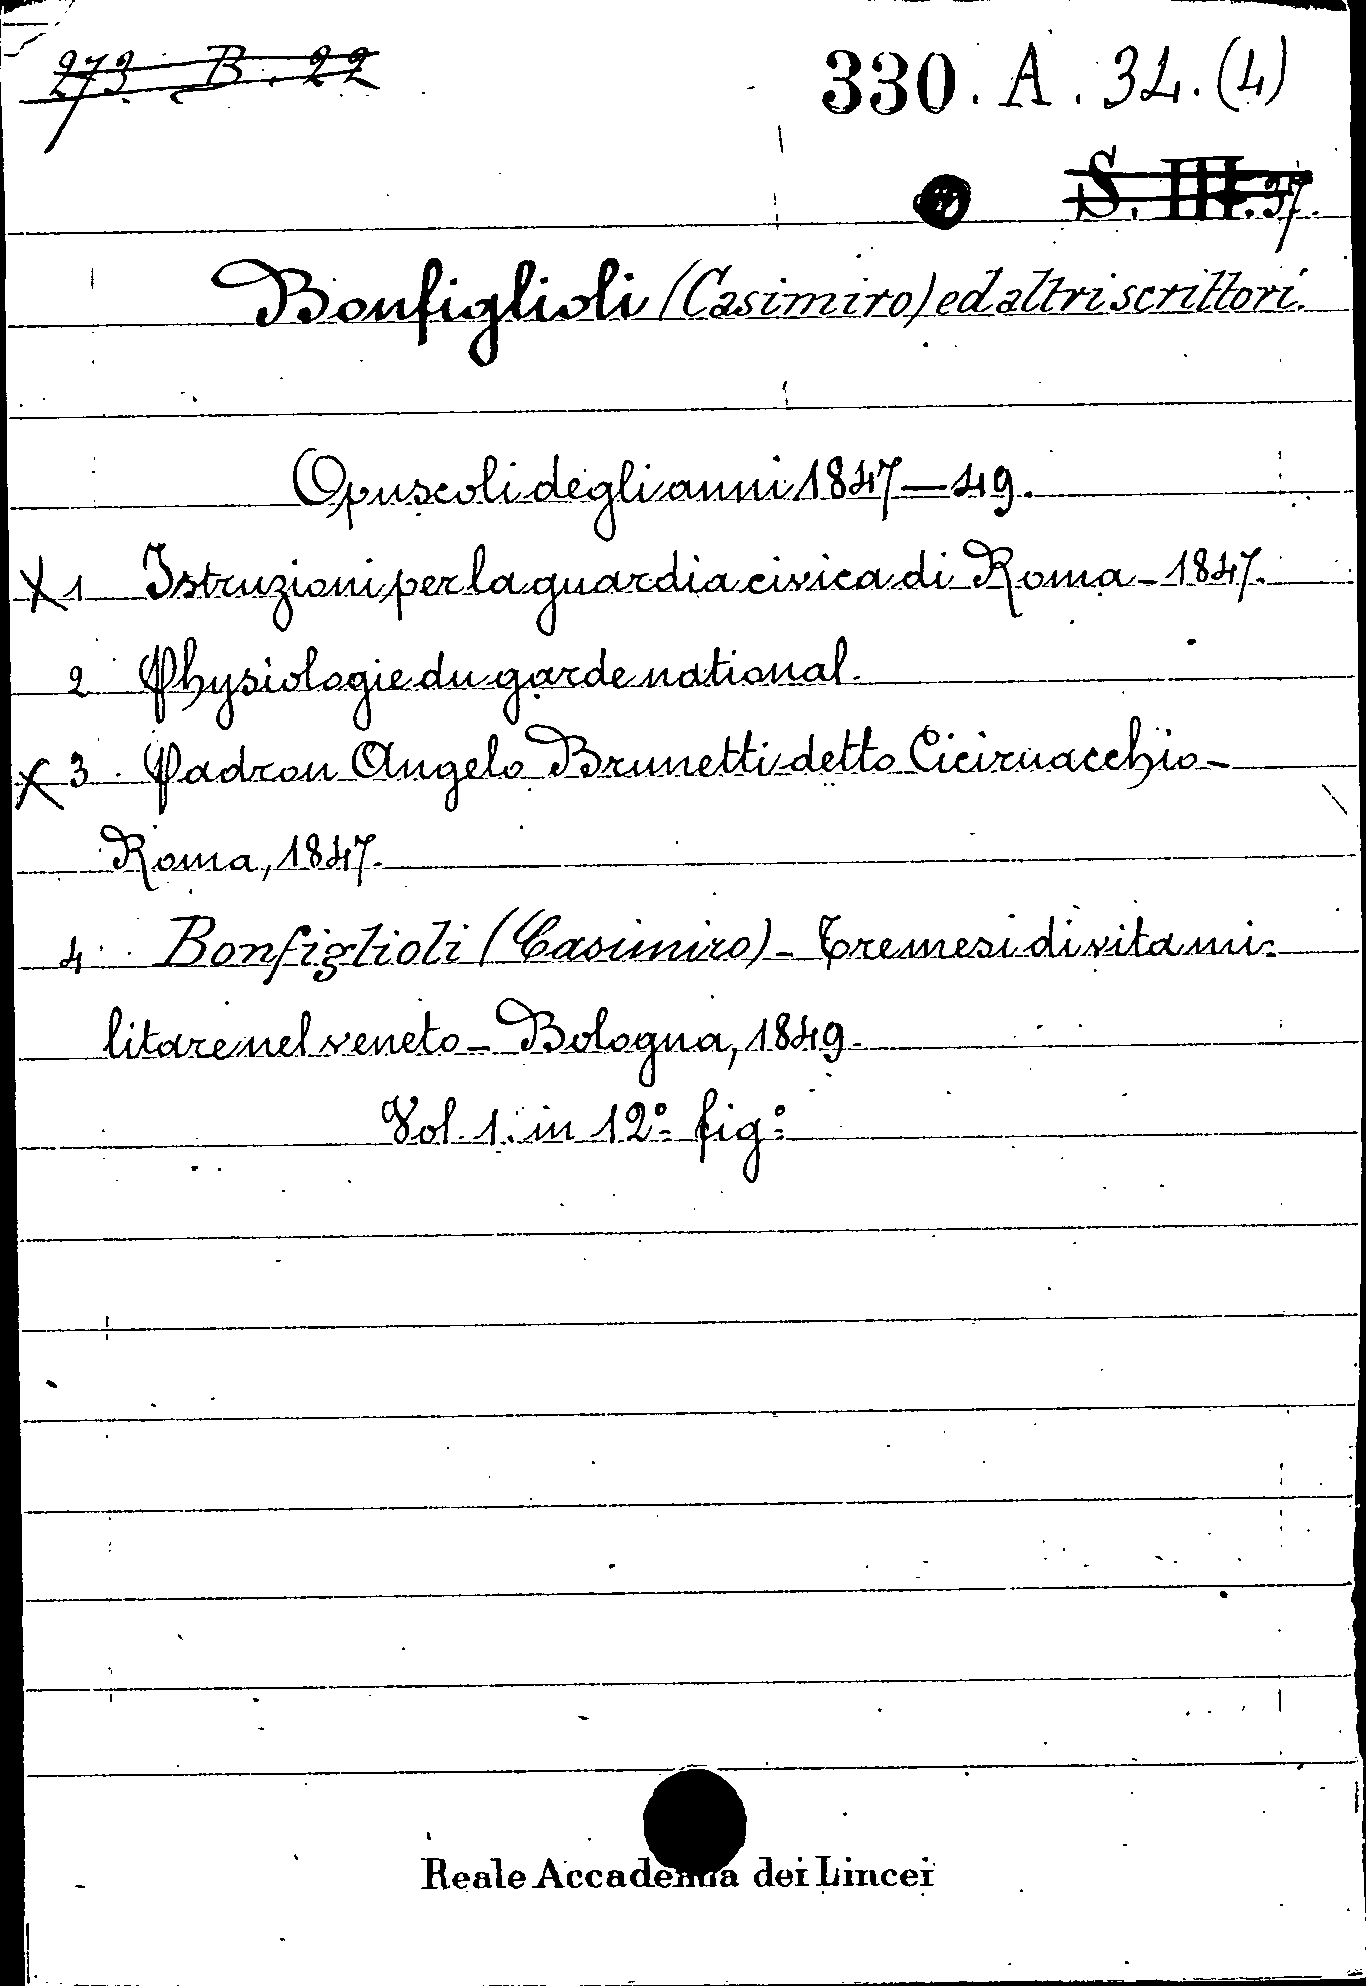 273. B. 22
330. A. 34. (4)
S. III. 37.
Bonfiglioli (Casimiro) ed altri scrittori.
Opuscoli degli anni 1847-49.
X 1 Istruzioni per la guardia civica di Roma - 1847.
2 Physiologie du garde national.
X 3 Padron Angelo Brunetti detto Ciciruacchio -
Roma, 1847.
4 Bonfiglioli (Casimiro) - Tre mesi di vita mi=
litare nel veneto - Bologna, 1849.
Vol. 1. in 12° fig°
Reale Accademia dei Lincei